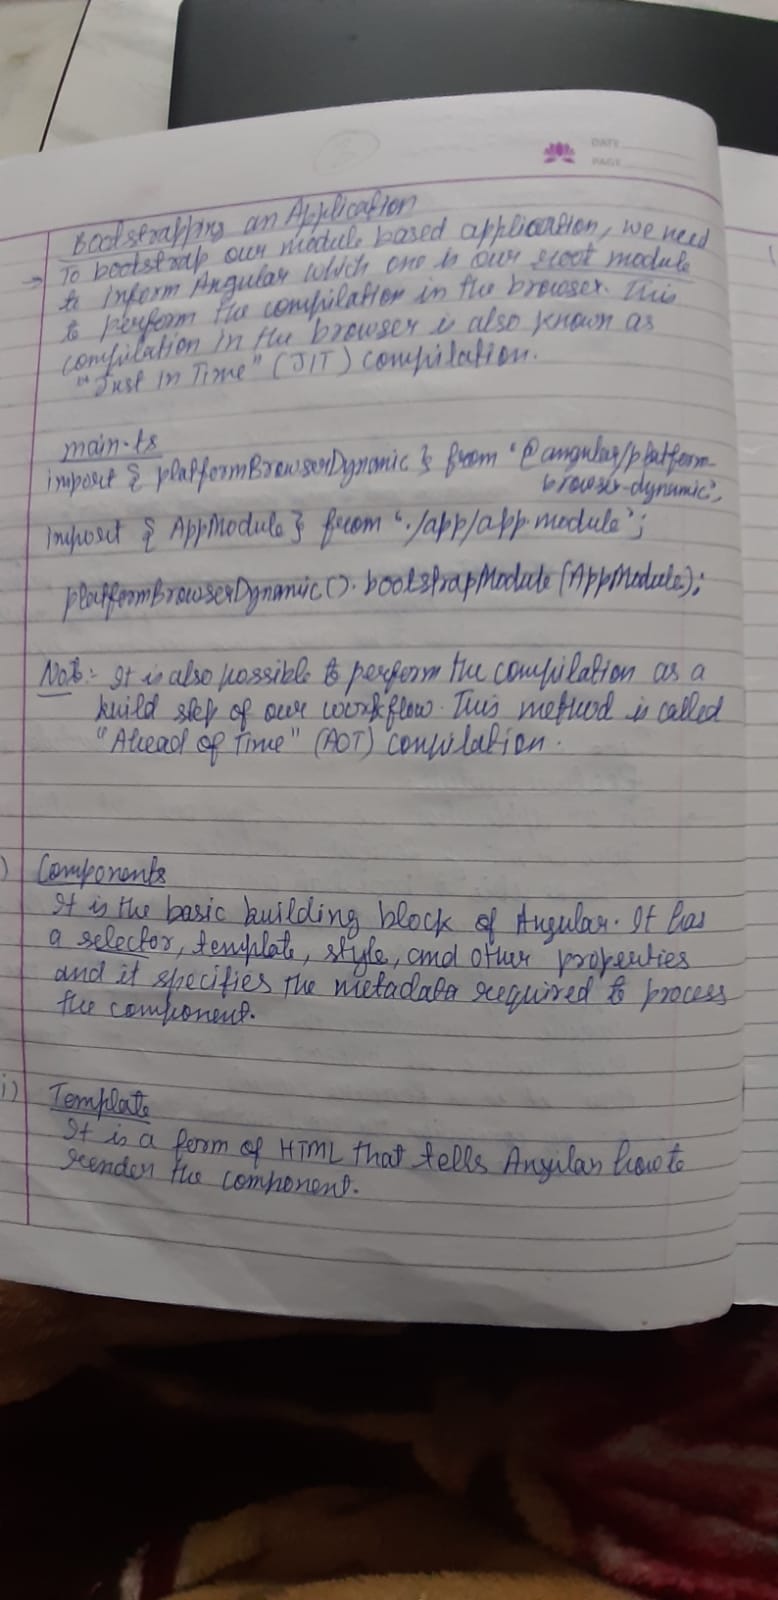 DATE
PAGE
Bootstrapping an Application
→ To bootstrap our module based application, we need
to inform Angular which one is our root module
to perform the compilation in the browser. This
compilation in the browser is also known as
"Just In Time" (JIT) compilation.
main.ts
import { platformBrowserDynamic } from '@angular/platform-
browser-dynamic';
import { AppModule } from './app/app.module';
platformBrowserDynamic().bootstrapModule(AppModule);
Note:- It is also possible to perform the compilation as a
build step of our workflow. This method is called
"Ahead of Time" (AOT) compilation.
) Components
It is the basic building block of Angular. It has
a selector, template, style, and other properties
and it specifies the metadata required to process
the component.
i) Template
It is a form of HTML that tells Angular how to
render the component.